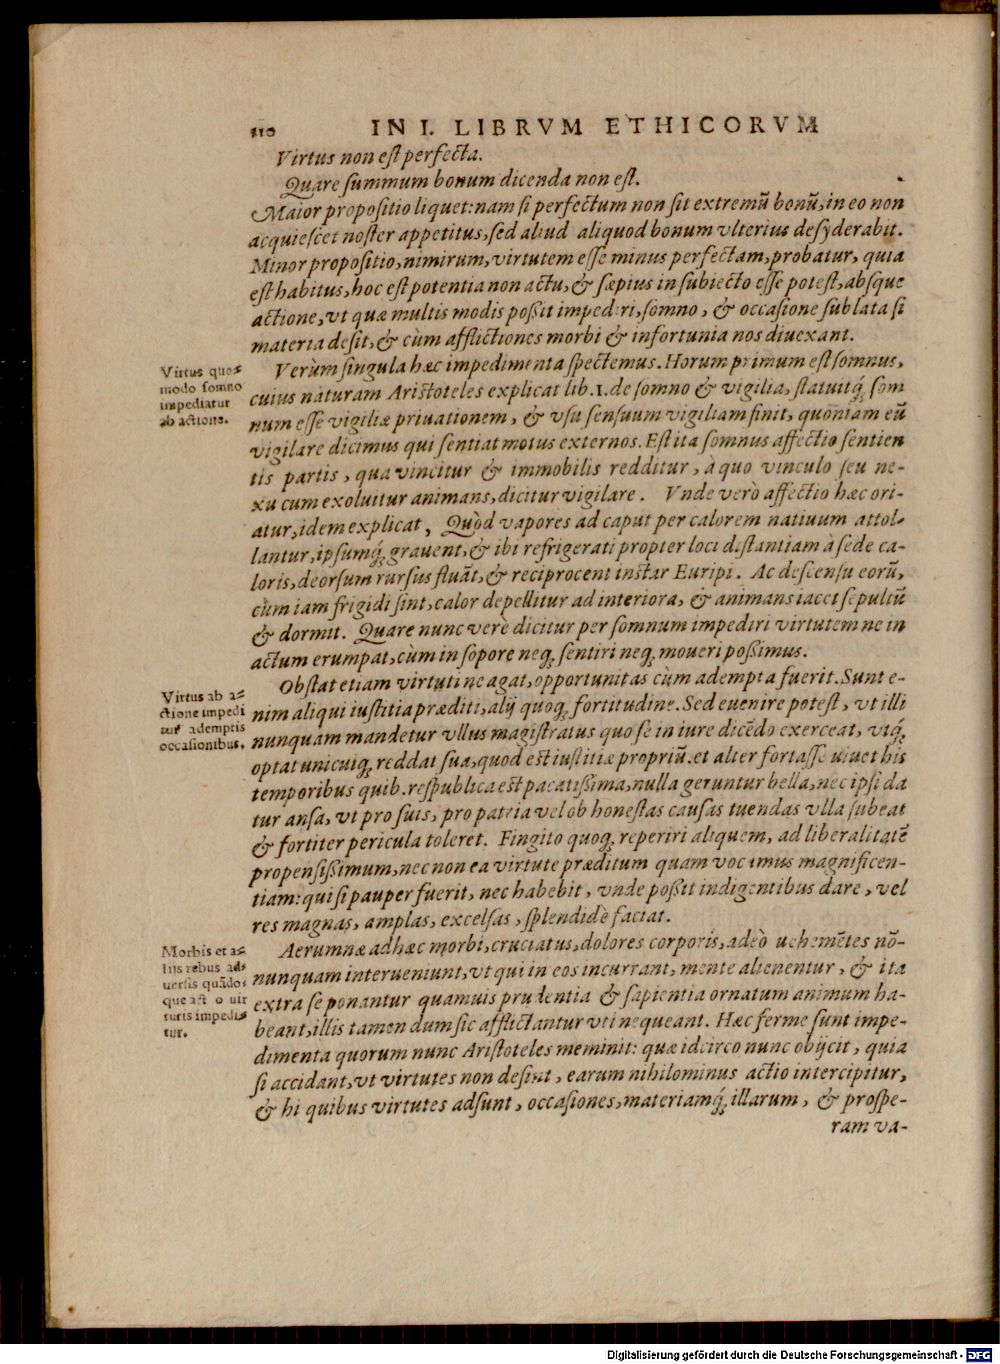 110 IN I. LIBRVM ETHICORVM
Virtus non est perfecta.
Quare summum bonum dicenda non est.
Maior propositio liquet: nam si perfectum non sit extremũ bonũ, in eo non
acquiescet noster appetitus, sed aliud aliquod bonum vlterius desyderabit.
Minor propositio, nimirum, virtutem esse minus perfectam, probatur, quia
est habitus, hoc est potentia non actu, & sæpius in subiecto esse potest, absque
actione, vt quæ multis modis poßit impediri, somno, & occasione sublata si
materia desit, & cùm afflictiones morbi & infortunia nos diuexant.
Virtus quo=
modo somno
impediatur
ab actione.
Verùm singula hæc impedimenta spectemus. Horum primum est somnus,
cuius naturam Aristoteles explicat lib. 1. de somno & vigilia, statuitq́; som
num esse vigiliæ priuationem, & vsu sensuum vigiliam finit, quoniam eũ
vigilare dicimus qui sentiat motus externos. Est ita somnus affectio sentien
tis partis, qua vincitur & immobilis redditur, à quo vinculo seu ne-
xu cum exoluitur animans, dicitur vigilare. Vnde verò affectio hæc ori-
atur, idem explicat, Quòd vapores ad caput per calorem natiuum attol-
lantur, ipsumq́; grauent, & ibi refrigerati propter loci distantiam à sede ca-
loris, deorsum rursus fluãt, & reciprocent instar Euripi. Ac descensu eorũ,
cùm iam frigidi sint, calor depellitur ad interiora, & animans iacet sepultũ
& dormit. Quare nunc verè dicitur per somnum impediri virtutem ne in
actum erumpat, cùm in sopore neq; sentiri neq; moueri poßimus.
Virtus ab a=
ctione impedi
tur ademptis
occasionibus.
Obstat etiam virtuti ne agat, opportunitas cùm adempta fuerit. Sunt e-
nim aliqui iustitia præditi, alij quoq; fortitudine. Sed euenire potest, vt illi
nunquam mandetur vllus magistratus quo se in iure dicẽdo exerceat, vtq́;
optat unicuiq; reddat sua, quod est iustitiæ propriũ. et alter fortasse uiuet his
temporibus quib. respublica est pacatißima, nulla geruntur bella, nec ipsi da
tur ansa, vt pro suis, pro patria vel ob honestas causas tuendas vlla subeat
& fortiter pericula toleret. Fingito quoq; reperiri aliquem, ad liberalitatẽ
propensißimum, nec non ea virtute præditum quam vocamus magnificen-
tiam: qui si pauper fuerit, nec habebit, vnde poßit indigentibus dare, vel
res magnas, amplas, excelsas, splendidè faciat.
Morbis et a=
lijs rebus ad=
uersis quãdo=
que actio uir
tutis impedi=
tur.
Aerumnæ adhæc morbi, cruciatus, dolores corporis, adeò uehemẽtes nõ-
nunquam interueniunt, vt qui in eos incurrant, mente alienentur, & ita
extra se ponantur quamuis prudentia & sapientia ornatum animum ha-
beant, illis tamen dum sic afflictantur vti nequeant. Hæc ferme sunt impe-
dimenta quorum nunc Aristoteles meminit: quæ idcirco nunc obijcit, quia
si accidant, vt virtutes non desint, earum nihilominus actio intercipitur,
& hi quibus virtutes adsunt, occasiones, materiamq́; illarum, & prospe-
ram va-
Digitalisierung gefördert durch die Deutsche Forschungsgemeinschaft - DFG